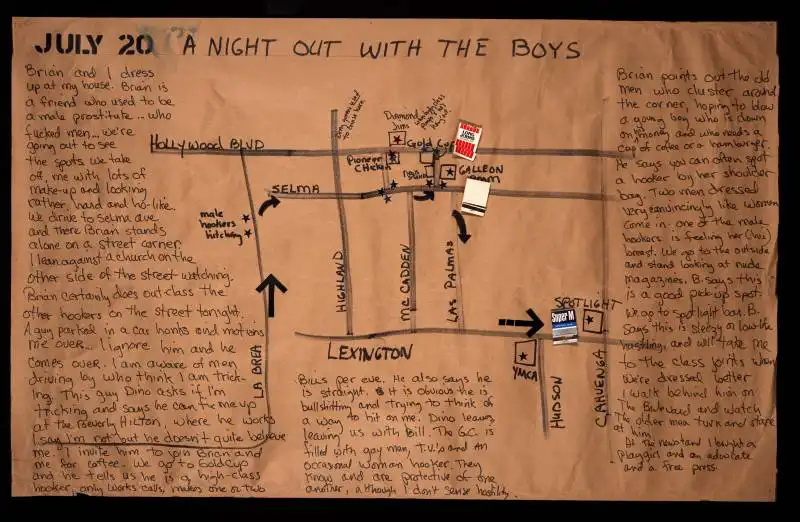 JULY 20 A NIGHT OUT WITH THE BOYS
Brian and I dress
up at my house. Brian is
a friend who used to be
a male prostitute .. who
fucked men... we're
going out to see
the spots. We take
off, me with lots of
make-up and looking
rather, hard and ho-like.
We drive to Selma ave
and there Brian stands
alone on a street corner
I lean against a church on the
other side of the street watching.
Brian certainly does outclass the
other hookers on the street tonight.
A guy parked in a car honks and motions
me over... I ignore him and he
comes over. I am aware of men
driving by who think I am trick-
ing. This guy Dino asks if I'm
tricking and says he can fix me up
at the Beverly Hilton, where he works
I say I'm not but he doesn't quite believe
me. I invite him to join Brian and
me for coffee. We go to Goldcup
and he tells us he is a high-class
hooker, only works calls, makes one or two
Bills per eve. He also says he
is straight. It is obvious he is
bullshitting and trying to think of
a way to hit on me. Dino leaves,
leaving us with Bill. The G.C. is
filled with gay men, T.V.'s and an
occasional woman hooker. They
know and are protective of one
another, although I don't sense hostility.
Brian points out the old
men who cluster around
the corner, hoping to blow
a young boy who is down
on his money and who needs a
cup of coffee or a hamburger.
He says you can often spot
a hooker by her shoulder
bag. Two men dressed
very convincingly like women
come in - one of the male
hookers is feeling her (his)
breast. We go to the outside
and stand looking at nude
magazines. B. says this
is a good pick-up spot.
We go to Spotlight bar. B.
says this is sleazy or low-life
hustling, and will take me
to the class joints when
we're dressed better
I walk behind him on
The Boulevard and watch
The older men turn and stare
at him.
At the newstand I bought a
Playgirl and an advocate
and a free press.
HOLLYWOOD BLVD
Diamond
Jims
Gold Cup
Pioneer
Chicken
GALLEON
ROOM
SELMA
male
hookers
hitching
HIGHLAND
MC CADDEN
LAS PALMAS
LA BREA
LEXINGTON
Super M
SPOTLIGHT
YMCA
HUDSON
CAHUENGA